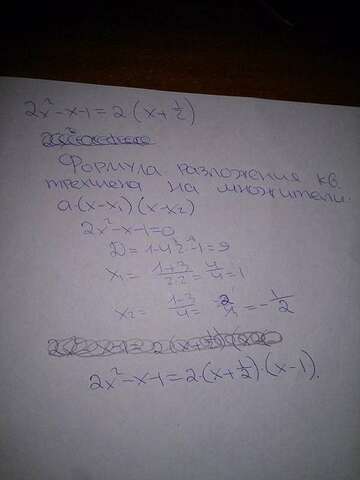 2x²-x-1=2(x+½)
Формула разложения кв.
трехчлена на множители.
a·(x-x₁)(x-x₂)
2x²-x-1=0
D=1-4·2·-1=9
x₁=(1+3)/(2·2)=4/4=1
x₂=(1-3)/4=-2/4=-1/2
2x²-x-1=2·(x+½)·(x-1).